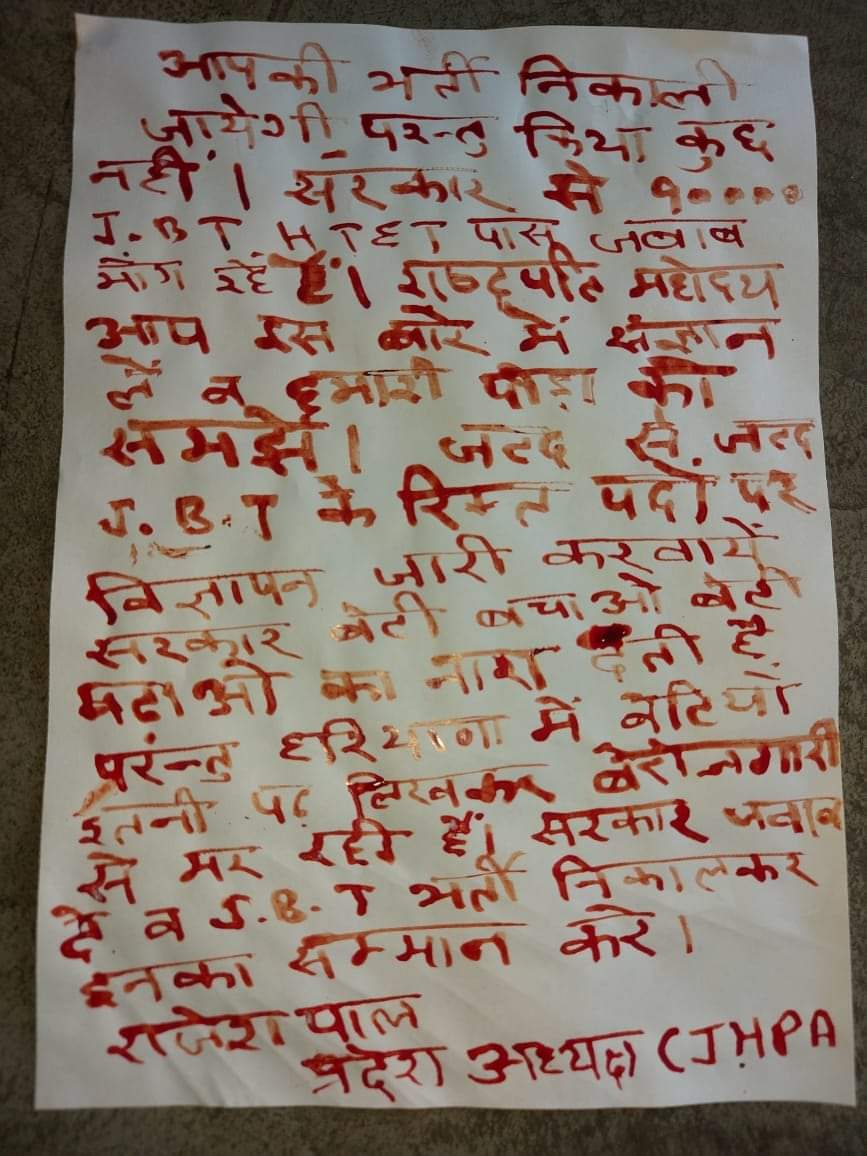 आपकी भर्ती निकाली
जायेगी परन्तु किया कुछ
नहीं। सरकार से १००००
J.B T HTET पास जवाब
मांग रहें हैं। राष्ट्रपति महोदय
आप इस बारे में संज्ञान
लें व हमारी पीड़ा को
समझें। जल्द से जल्द
J.B.T के रिक्त पदों पर
विज्ञापन जारी करवायें
सरकार बेटी बचाओ बेटी
पढ़ाओ का नारा देती है
परन्तु हरियाणा में बेटियाँ
इतनी पढ़ लिखकर बेरोजगारी
से मर रही हैं। सरकार जवाब
दे व J.B.T भर्ती निकालकर
इनका सम्मान करे।
राजेश पाल
प्रदेश अध्यक्ष (JHPA